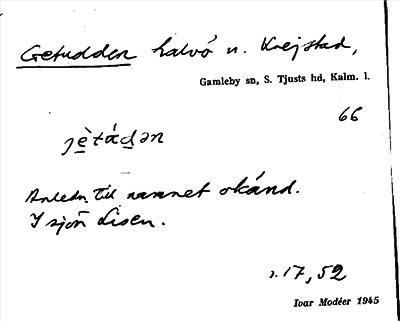 Getudden halvö n. Krejstad,
Gamleby sn, S. Tjusts hd, Kalm. l.
66
Anledn till namnet okänd.
I sjön Lisen.
s. 17, 52
Ivar Modéer 1945